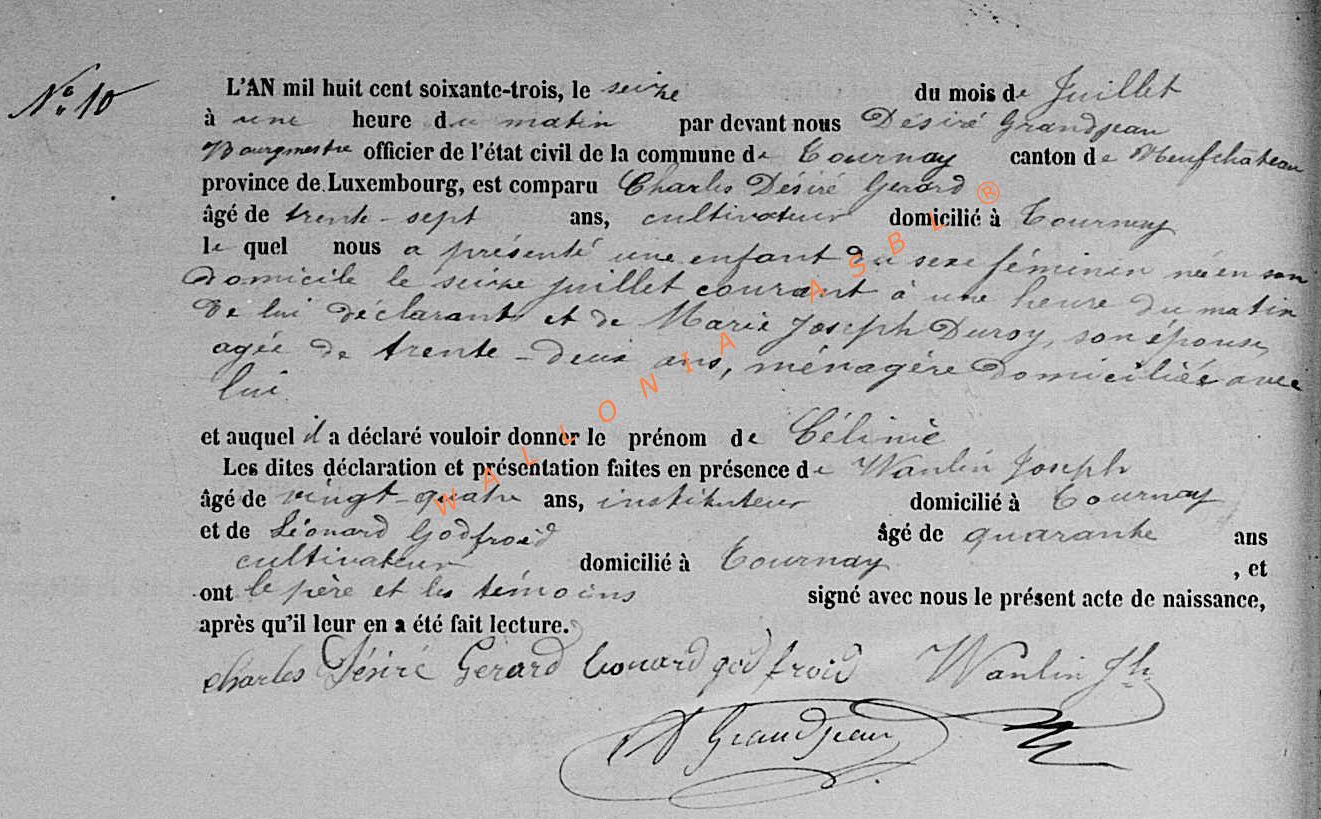 N° 10
L'AN mil huit cent soixante-trois, le seize du mois de Juillet
à une heure du matin par devant nous Désiré Grandjean
Bourgmestre officier de l'état civil de la commune de Tournay canton de Neufchâteau
province de Luxembourg, est comparu Charles Désiré Gerard
âgé de trente-sept ans, cultivateur domicilié à Tournay
le quel nous a présenté une enfant du sexe féminin née en son
domicile le seize juillet courant à une heure du matin
de lui déclarant et de Marie Joseph Duroy, son épouse,
agée de trente-deux ans, ménagère domiciliée avec
lui.
et auquel il a déclaré vouloir donner le prénom de Célinie
Les dites déclaration et présentation faites en présence de Wanlin Joseph
âgé de vingt-quatre ans, instituteur domicilié à Tournay
et de Léonard Godfroid âgé de quarante ans
cultivateur domicilié à Tournay , et
ont le père et les témoins signé avec nous le présent acte de naissance,
après qu'il leur en a été fait lecture.
Charles Désiré Gérard Léonard godfroid Wanlin Jh
D Grandjean
WALLONIA ASBL ®